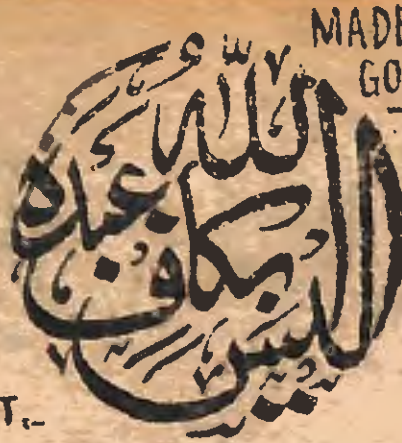 MADE
GO
أليس الله بكاف عبده
T.-